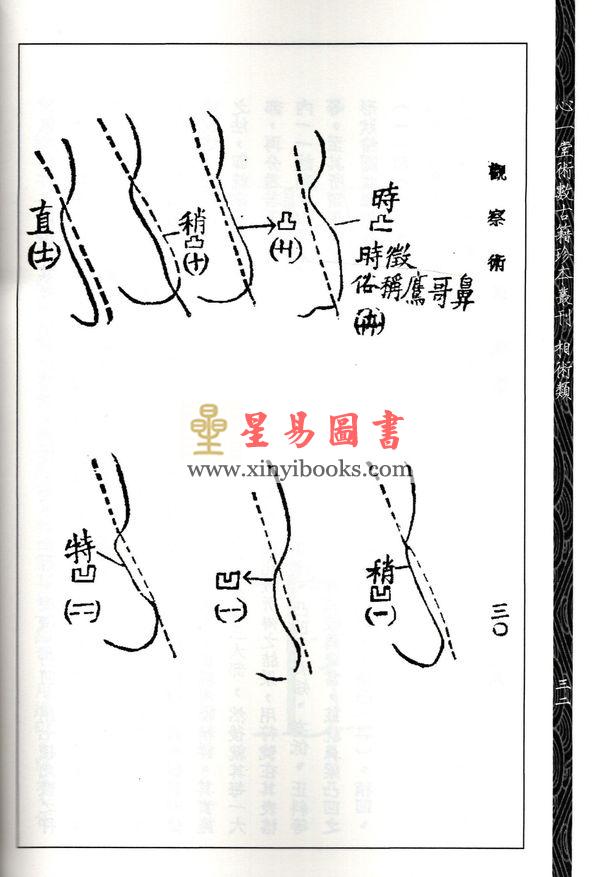 心一堂術數古籍珍本叢刊 相術類
三二
觀察術
三〇
時凸
時徵
俗稱鷹哥鼻
凸
稍凸
(十)
直
(士)
星易圖書
www.xinyibooks.com
稍凹
(一)
凹
(一)
特凹
(二)